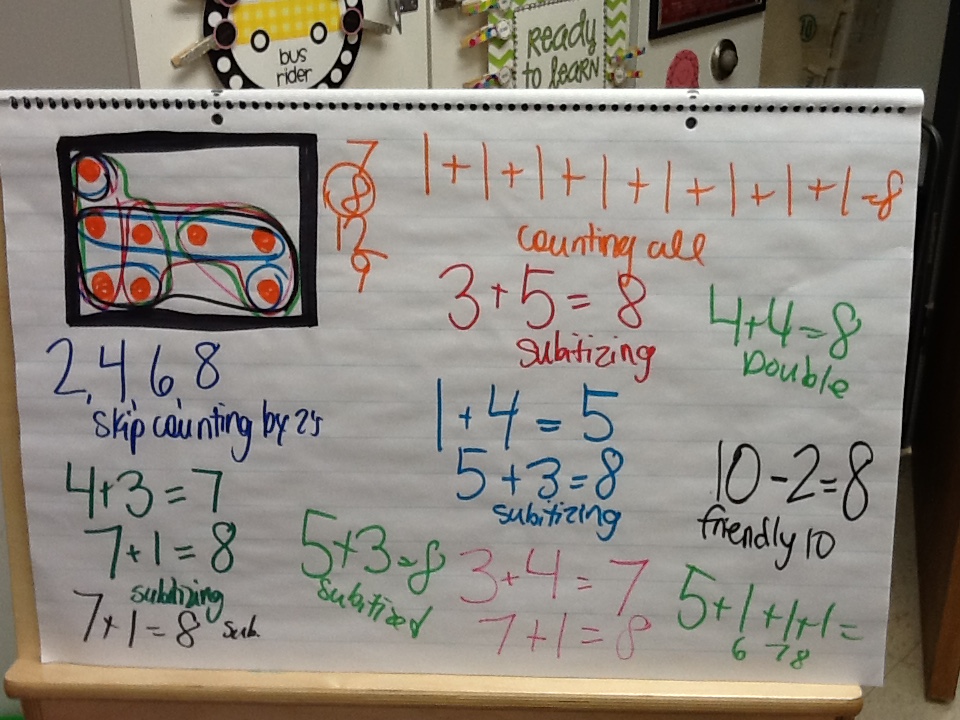 bus
rider
READY
to LEARN
7
8
12
9
1+1+1+1+1+1+1+1=8
counting all
3+5=8
subitizing
4+4=8
Double
2,4,6,8
skip counting by 2s
1+4=5
5+3=8
subitizing
10-2=8
friendly 10
4+3=7
7+1=8
subitizing
7+1=8 sub.
5+3=8
subitized
3+4=7
7+1=8
5+1+1+1=
6 7 8